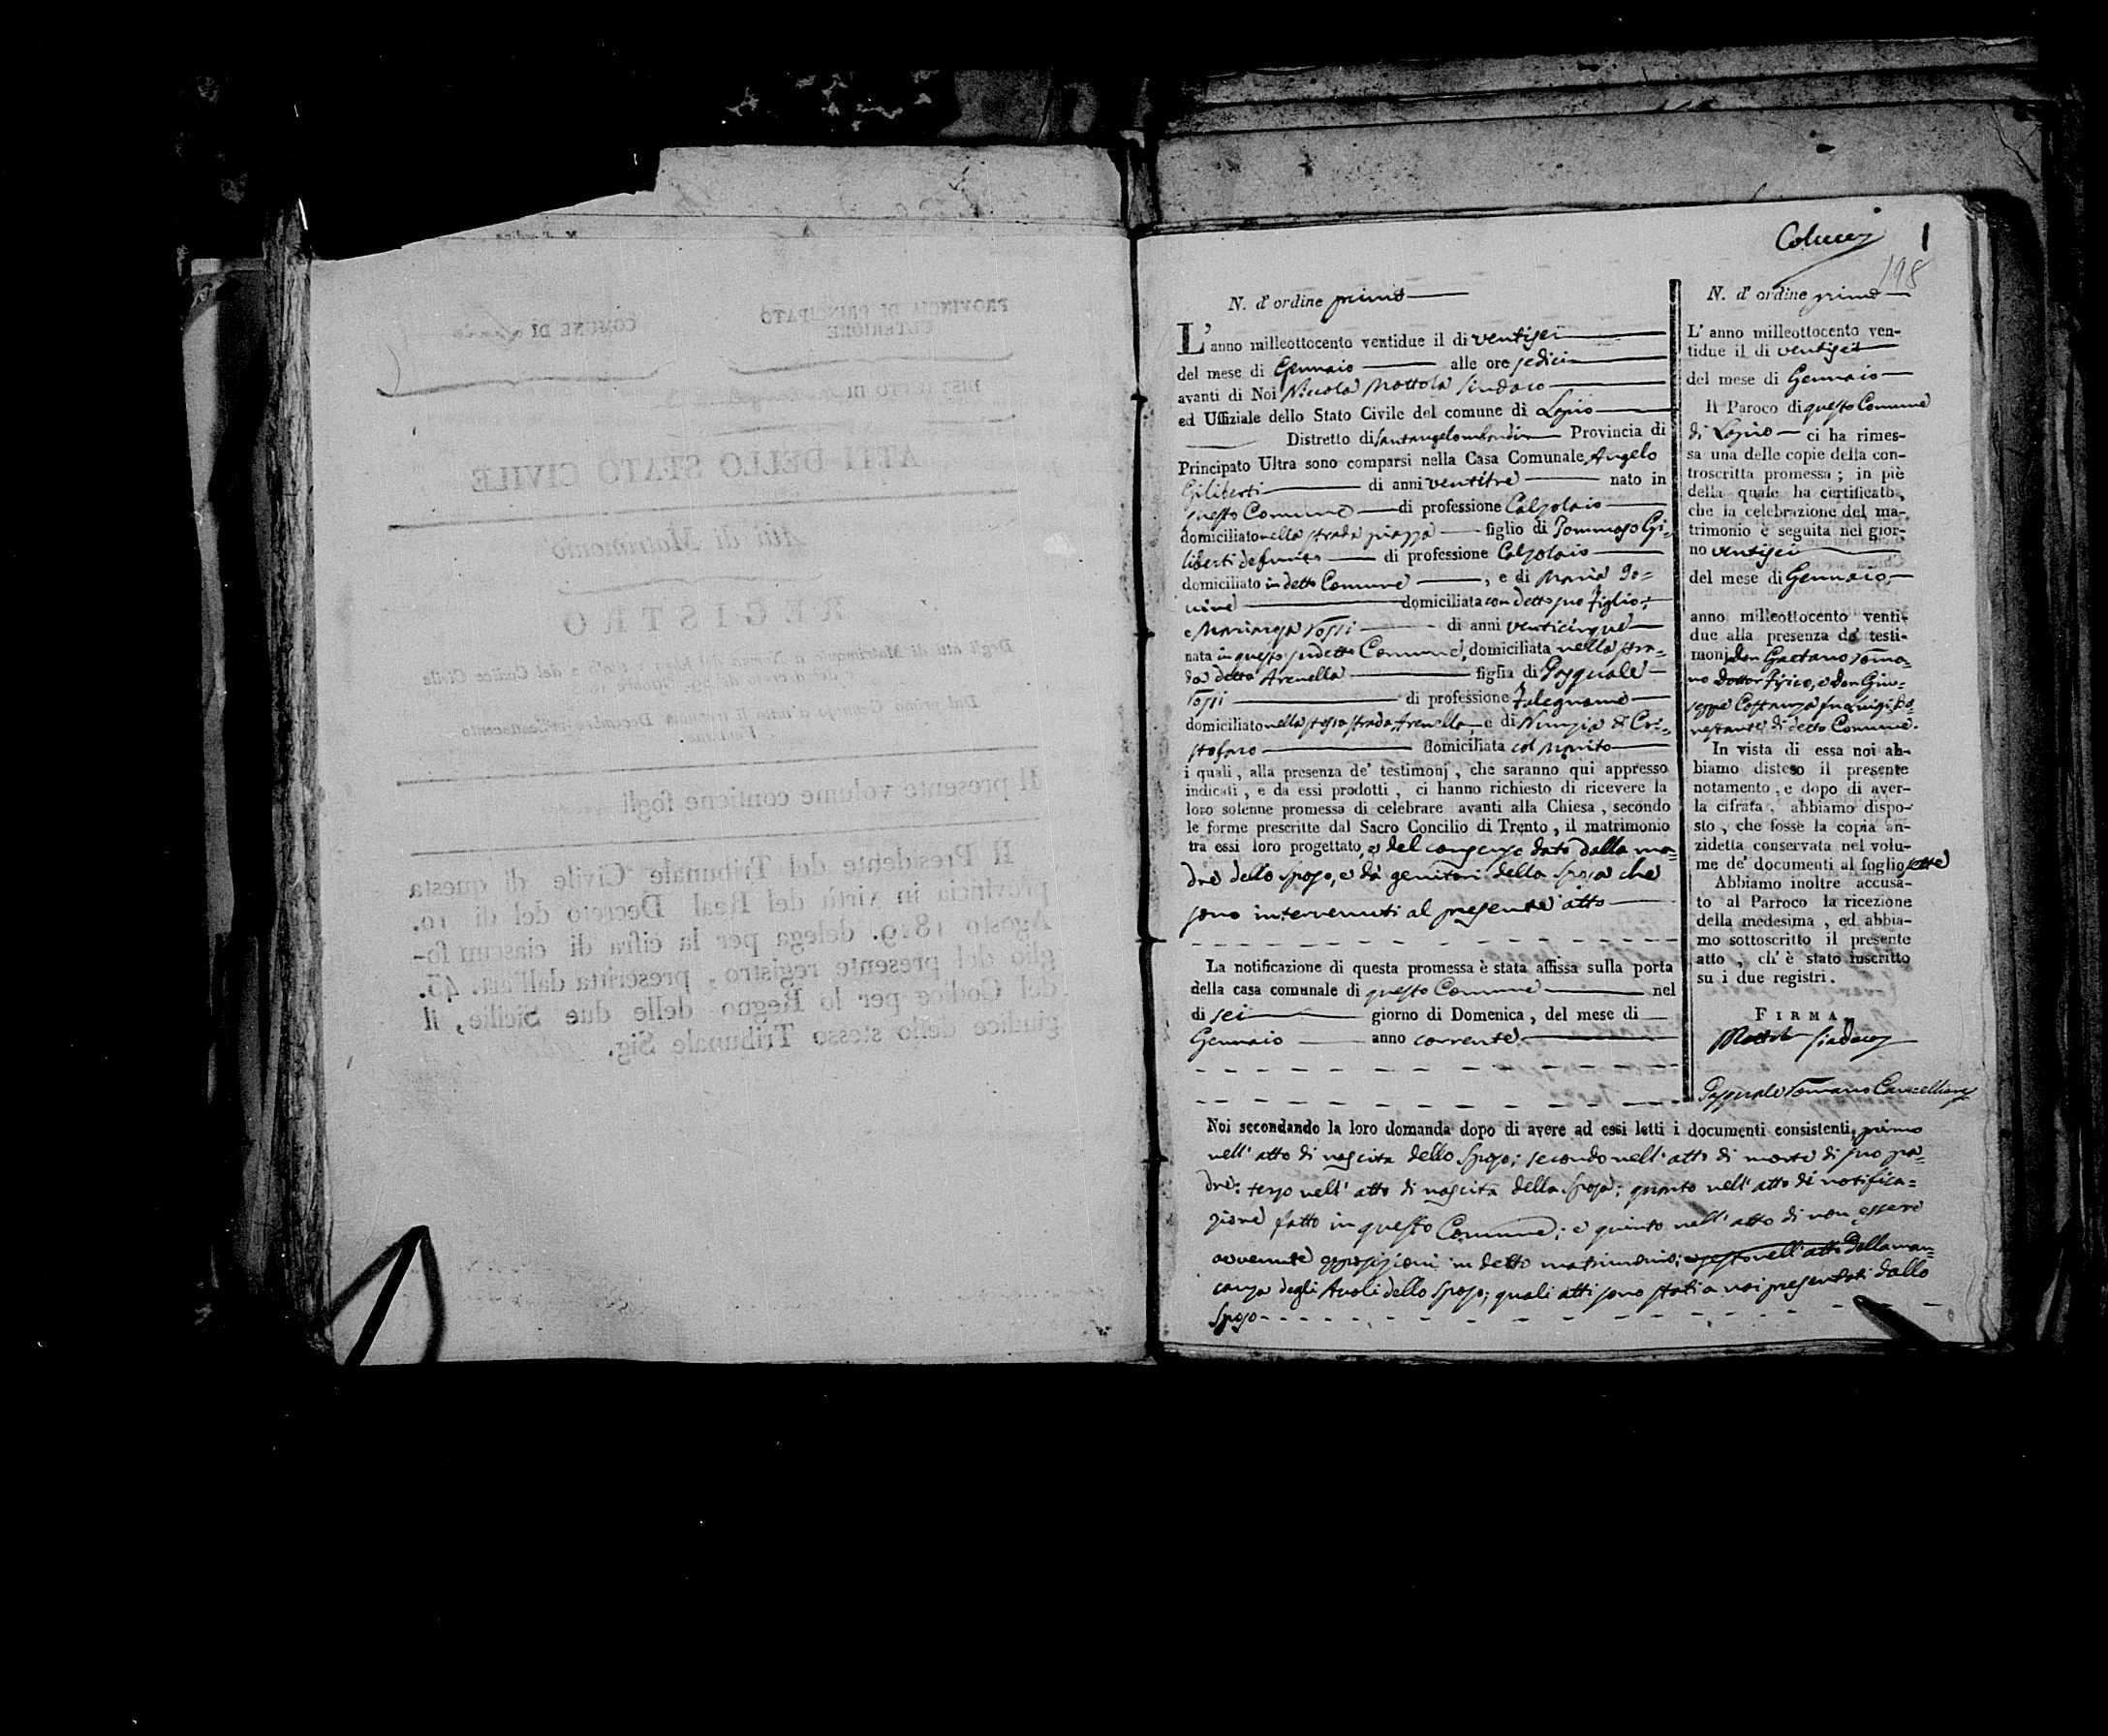 PROVINCIA DI PRINCIPATO
ULTERIORE
COMUNE DI
DISTRETTO DI
ATTI DELLO STATO CIVILE
Atti di Matrimonio
REGISTRO
Il presente volume contiene fogli
Il Presidente del Tribunale Civile di questa
provincia in virtù del Real Decreto del dì 10.
Agosto 1819. delega per la cifra di ciascun fo-
glio del presente registro, prescritta dall'art. 45.
del Codice per lo Regno delle due Sicilie, il
giudice dello stesso Tribunale Sig.
Colucci 1
198
N. d'ordine primo
L'anno milleottocento ventidue il di ventisei
del mese di Gennaio alle ore sedici
avanti di Noi Niccola Mottola Sindaco
ed Uffiziale dello Stato Civile del comune di Lapio
Distretto di Santangelolombardi Provincia di
Principato Ultra sono comparsi nella Casa Comunale Angelo
Giliberti di anni ventitre nato in
questo Comune di professione Calzolaio
domiciliato nella strada piazza figlio di Tommaso Gi-
liberti defunto di professione Calzolaio
domiciliato in detto Comune, e di Maria Io=
vine domiciliata con detto suo figlio;
e Mariangela Tossi di anni venticinque
nata in questo sudetto Comune, domiciliata nella stra-
da detta Arenella figlia di Pasquale
Tossi di professione Falegname
domiciliato nella stessa strada Arenella, e di Nunzia di Cri=
stofaro domiciliata col Marito
i quali, alla presenza de' testimonj, che saranno qui appresso
indicati, e da essi prodotti, ci hanno richiesto di ricevere la
loro solenne promessa di celebrare avanti alla Chiesa, secondo
le forme prescritte dal Sacro Concilio di Trento, il matrimonio
tra essi loro progettato, e del consenso dato dalla ma=
dre dello sposo, e da genitori della sposa che
sono intervenuti al presente atto
La notificazione di questa promessa è stata affissa sulla porta
della casa comunale di questo Comune nel
di sei giorno di Domenica, del mese di
Gennaio anno corrente
N. d'ordine primo
L'anno milleottocento ven-
tidue il di ventisei
del mese di Gennaio
Il Paroco di questo Comune
di Lapio ci ha rimes-
sa una delle copie della con-
troscritta promessa; in piè
della quale ha certificato,
che la celebrazione del ma-
trimonio è seguita nel gior-
no ventisei
del mese di Gennaio
anno milleottocento venti-
due alla presenza de' testi-
monj don Gaetano Roma=
no Dottor Fisico, e don Giu=
seppe Costanza fu Luigi, Be=
nestante di detto Comune.
In vista di essa noi ab-
biamo disteso il presente
notamento, e dopo di aver-
la cifrata, abbiamo dispo-
sto, che fosse la copia an-
zidetta conservata nel volu-
me de' documenti al foglio sette
Abbiamo inoltre accusa-
to al Parroco la ricezione
della medesima, ed abbia-
mo sottoscritto il presente
atto, ch'è stato inscritto
su i due registri.
FIRMA
Mottola Sindaco
Pasquale Romano Cancelliere
Noi secondando la loro domanda dopo di avere ad essi letti i documenti consistenti, primo
nell'atto di nascita dello Sposo; secondo nell'atto di morte di suo pa=
dre; terzo nell'atto di nascita della Sposa; quarto nell'atto di notifica=
zione fatto in questo Comune; e quinto nell'atto di non essere
avvenute opposizioni in detto matrimonio; e sesto nell'atto della man=
canza degli Avoli dello Sposo; quali atti sono stati a noi presentati dallo
Sposo